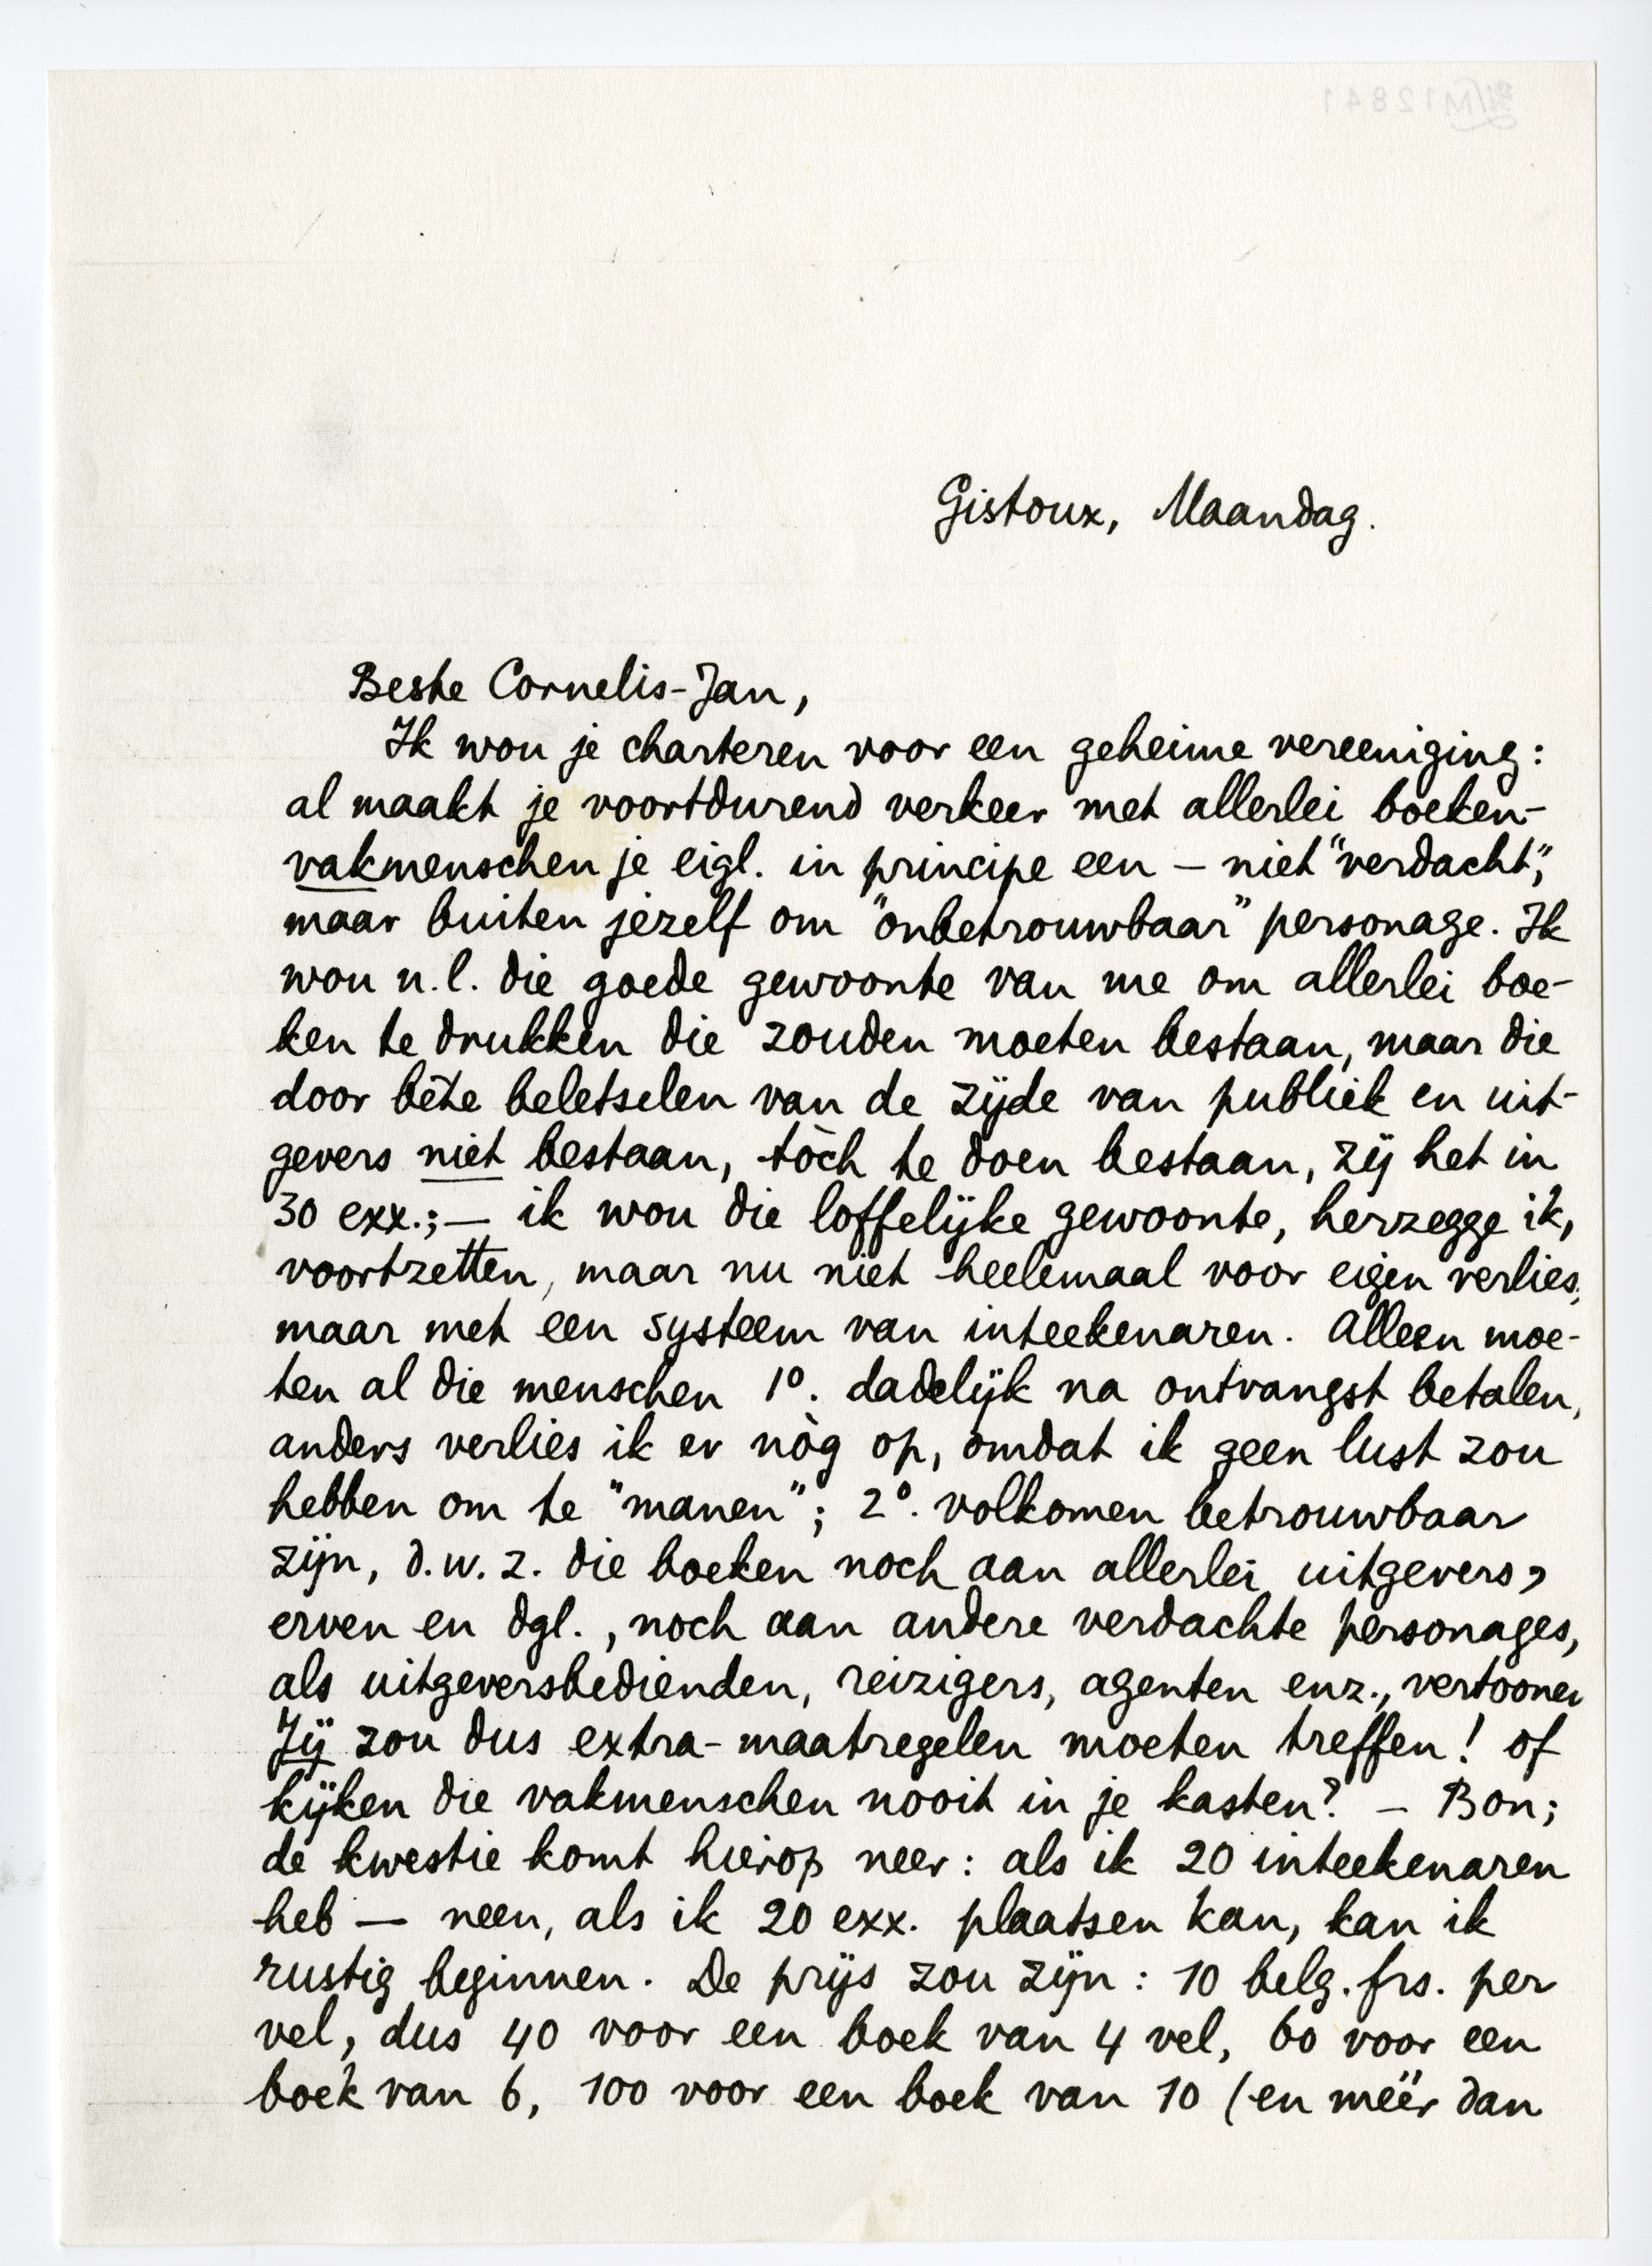 Gistoux, Maandag.
Beste Cornelis-Jan,
Ik wou je charteren voor een geheime vereeniging:
al maakt je voortdurend verkeer met allerlei boeken-
vakmenschen je eigl. in principe een – niet "verdacht",
maar buiten jezelf om "onbetrouwbaar" personage. Ik
wou n.l. die goede gewoonte van me om allerlei boe-
ken te drukken die zouden moeten bestaan, maar die
door bête beletselen van de zijde van publiek en uit-
gevers niet bestaan, tòch te doen bestaan, zij het in
30 exx.; — ik wou die loffelijke gewoonte, herzegge ik,
voortzetten, maar nu niet heelemaal voor eigen verlies,
maar met een systeem van inteekenaren. Alleen moe-
ten al die menschen 1º. dadelijk na ontvangst betalen,
anders verlies ik er nòg op, omdat ik geen lust zou
hebben om te "manen"; 2º. volkomen betrouwbaar
zijn, d.w.z. die boeken noch aan allerlei uitgevers,
erven en dgl., noch aan andere verdachte personages,
als uitgeversbedienden, reizigers, agenten enz., vertoonen
Jij zou dus extra-maatregelen moeten treffen! of
kijken die vakmenschen nooit in je kasten? – Bon;
de kwestie komt hierop neer: als ik 20 inteekenaren
heb — neen, als ik 20 exx. plaatsen kan, kan ik
rustig beginnen. De prijs zou zijn: 10 belg. frs. per
vel, dus 40 voor een boek van 4 vel, 60 voor een
boek van 6, 100 voor een boek van 10 (en méér dan